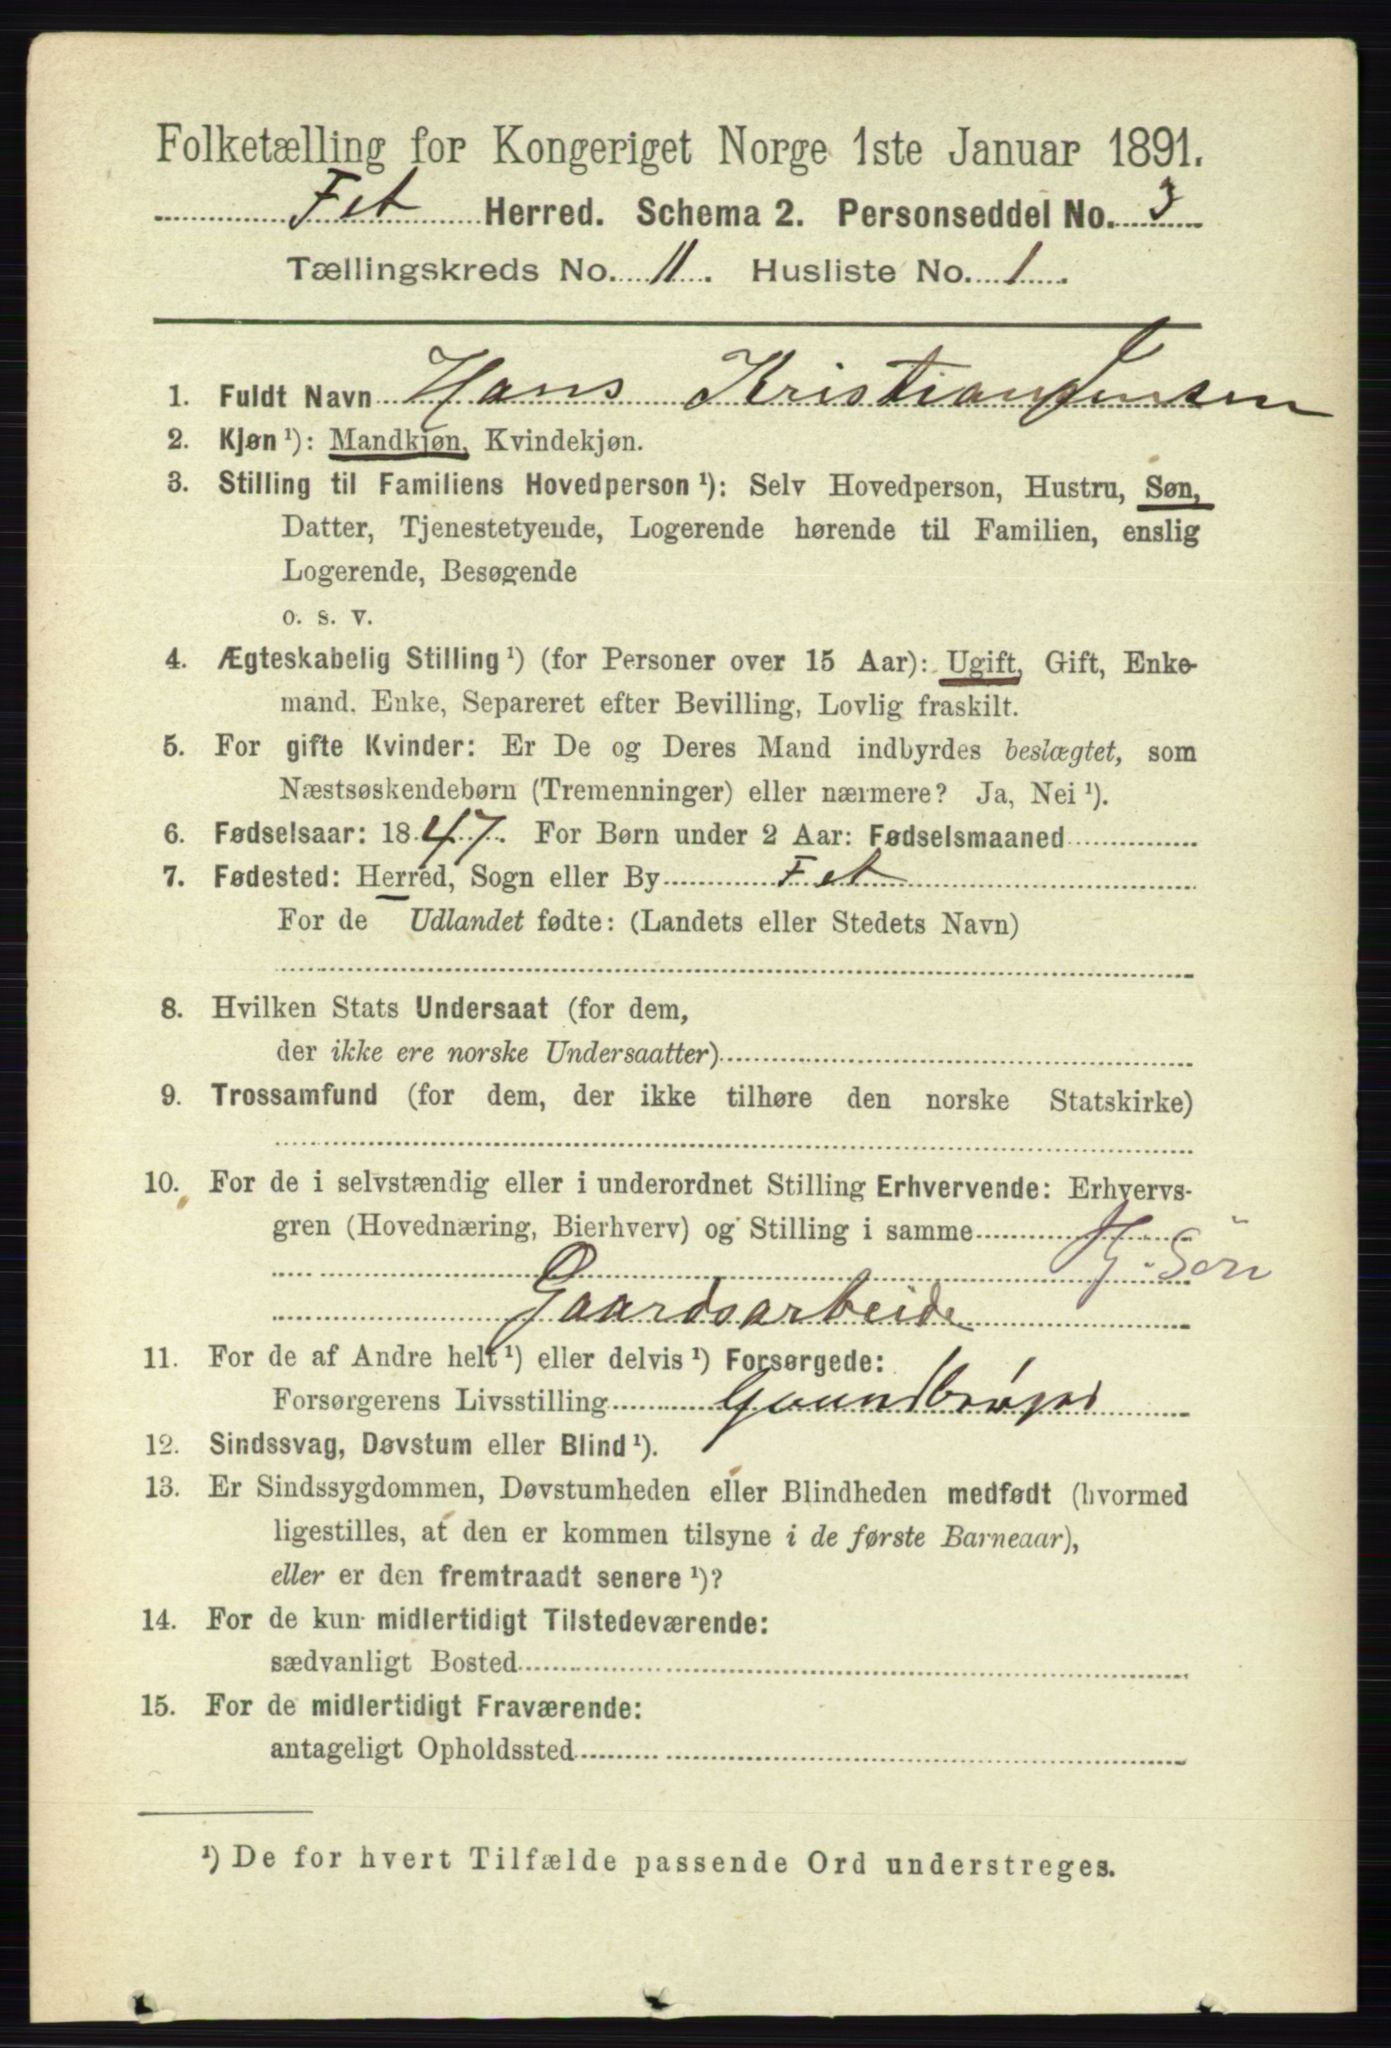 Folketælling for Kongeriget Norge 1ste Januar 1891.
Fet Herred. Schema 2. Personseddel No. 3
Tællingskreds No. 11. Husliste No. 1.
1. Fuldt Navn Hans Kristian Jensen
2. Kjøn ¹): Mandkjøn, Kvindekjøn.
3. Stilling til Familiens Hovedperson ¹): Selv Hovedperson, Hustru, Søn,
Datter, Tjenestetyende, Logerende hørende til Familien, enslig
Logerende, Besøgende
o. s. v.
4. Ægteskabelig Stilling ¹) (for Personer over 15 Aar): Ugift, Gift, Enke-
mand, Enke, Separeret efter Bevilling, Lovlig fraskilt.
5. For gifte Kvinder: Er De og Deres Mand indbyrdes beslægtet, som
Næstsøskendebørn (Tremenninger) eller nærmere? Ja, Nei ¹).
6. Fødselsaar: 1847. For Børn under 2 Aar: Fødselsmaaned
7. Fødested: Herred, Sogn eller By Fet
For de Udlandet fødte: (Landets eller Stedets Navn)
8. Hvilken Stats Undersaat (for dem,
der ikke ere norske Undersaatter)
9. Trossamfund (for dem, der ikke tilhøre den norske Statskirke)
10. For de i selvstændig eller i underordnet Stilling Erhvervende: Erhvervs-
gren (Hovednæring, Bierhverv) og Stilling i samme
Søn
Gaardsarbeide
11. For de af Andre helt ¹) eller delvis ¹) Forsørgede:
Forsørgerens Livsstilling
12. Sindssvag, Døvstum eller Blind ¹).
13. Er Sindssygdommen, Døvstumheden eller Blindheden medfødt (hvormed
ligestilles, at den er kommen tilsyne i de første Barneaar),
eller er den fremtraadt senere ¹)?
14. For de kun midlertidigt Tilstedeværende:
sædvanligt Bosted
15. For de midlertidigt Fraværende:
antageligt Opholdssted
¹) De for hvert Tilfælde passende Ord understreges.